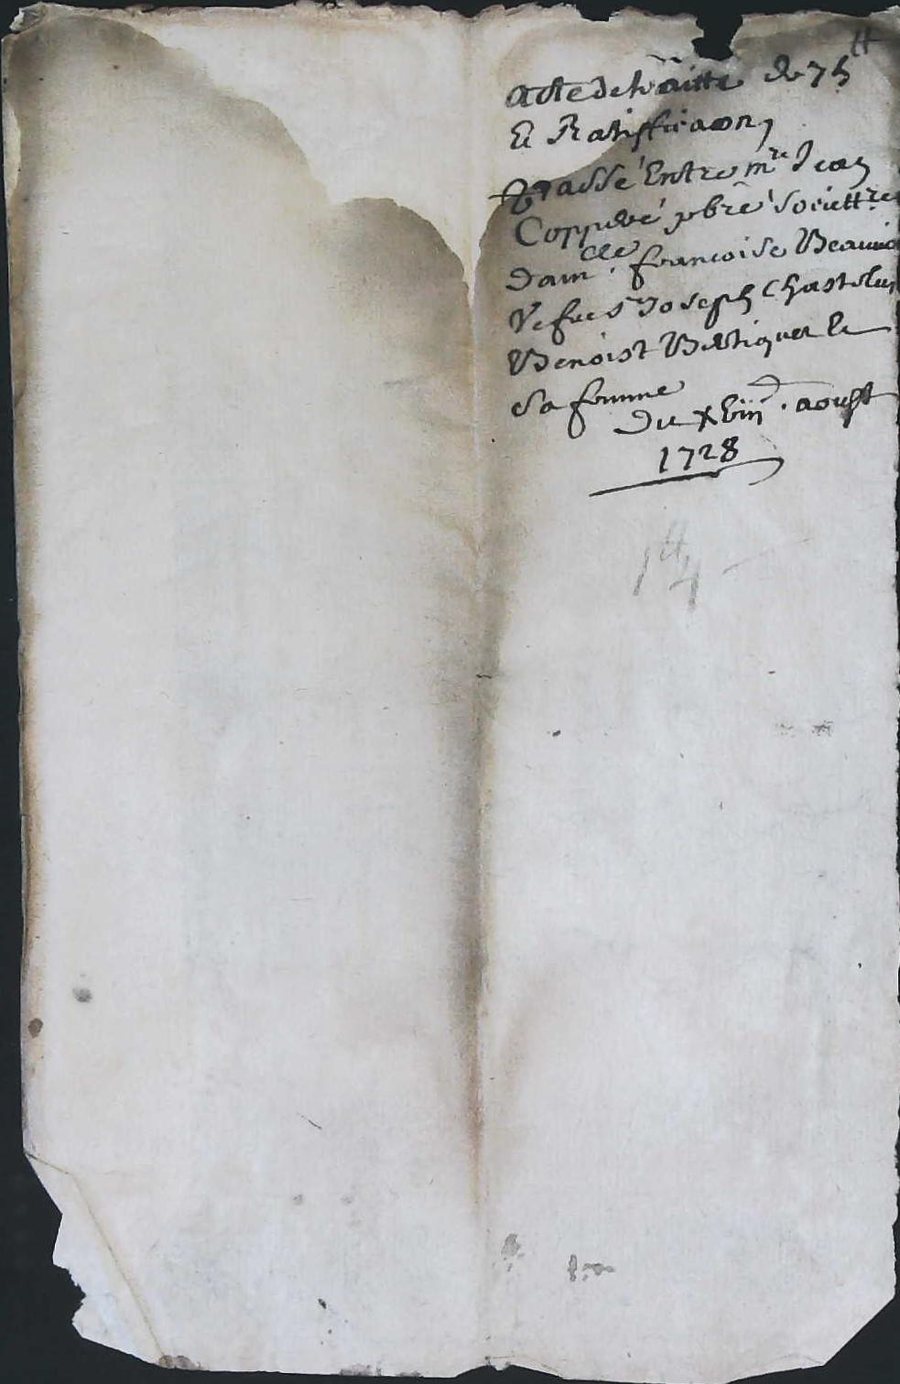 acte de traitte de 75 ₶
Et Ratifficaon,
Passé Entre mre Jean
Coppere pbre Societtre
damlle francoise Beauvio
Vefue sr Joseph Chastelus
Benoist Bertiquer Et
sa femme
Du xviiie aoust
1728
1₶ 4